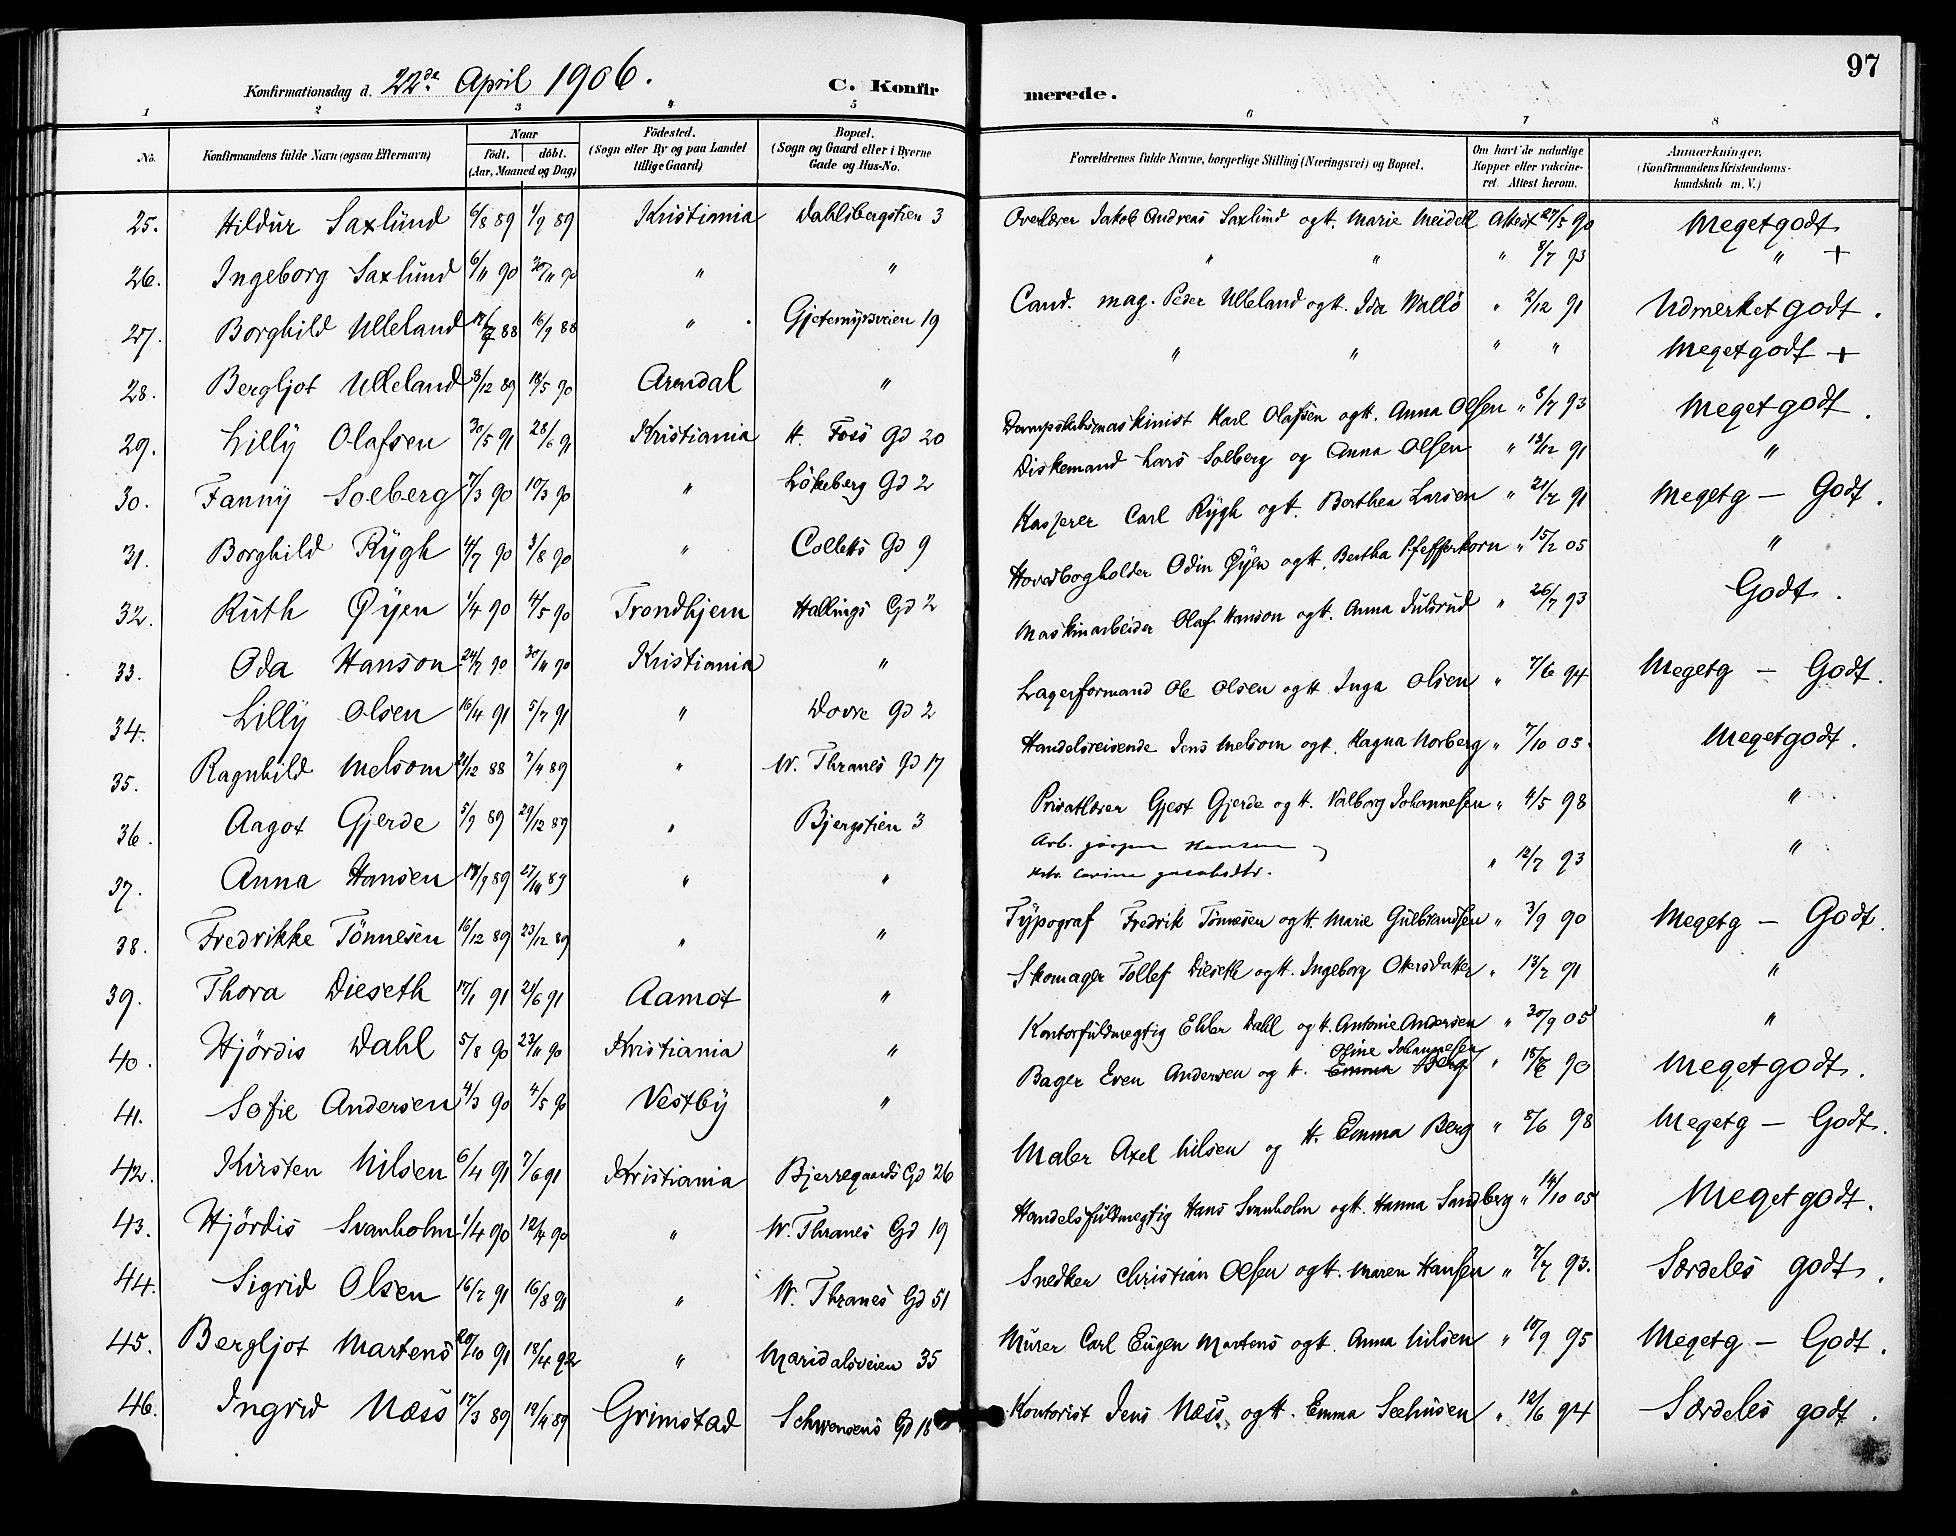 97
Konfirmationsdag d. 22de April 1906. C. Konfirmerede.
1 2 3 4 5 6 7 8
No. Konfirmandens fulde Navn (ogsaa Efternavn) Naar født. døbt. (Aar, Maaned og Dag) Fødested. (Sogn eller By og paa Landet tillige Gaard) Bopæl. (Sogn og Gaard eller i Byerne Gade og Hus-No. Forældrenes fulde Navne, borgerlige Stilling (Næringsvei) og Bopæl. Om havt de naturlige Kopper eller vakcineret. Attest herom. Anmærkninger, (Konfirmandens Kristendomskundskab m. V.)
25. Hildur Saxlund 6/8 89 1/9 89 Kristiania Dahlsbergstien 3 Overlærer Jakob Andreas Saxlund og H. Marie Meidell Attest 27/5 90 Meget godt
26. Ingeborg Saxlund 6/11 90 30/11 90 " " " " " 8/7 93 " +
27. Borghild Ulleland 88 16/9 88 " Gjetemyrsveien 19 Cand. mag. Peder Ulleland og H. Ida Wallö " 2/12 91 Udmerket godt.
28. Bergljot Ulleland 8/12 89 18/5 90 Arendal " " " " " Meget godt +
29. Lilly Olafsen 30/5 91 28/6 91 Kristiania H. Foss Gd 20 Dampskibsmaskinist Karl Olafsen og H. Anna Olsen " 8/7 93 Meget godt.
30. Fanny Solberg 7/3 90 10/3 90 " Lökeberg Gd 2 Diskemand Lars Solberg og Anna Olsen " 13/12 91 "
31. Borghild Rygh 4/7 90 3/8 90 " Colletts Gd 9 Kasserer Carl Rygh og H. Berthea Larsen " 21/7 91 Meget g — Godt.
32. Ruth Øyen 1/4 90 4/5 90 Trondhjem Hallings Gd 2 Hovedbogholder Odin Øyen og H. Bertha Pfefferkorn " 15/2 05 "
33. Oda Hanson 24/7 90 30/11 90 Kristiania " Maskinarbeider Olaf Hanson og H. Anna Julsrud " 26/7 93 Godt.
34. Lilly Olsen 16/4 91 5/7 91 " Dovre Gd 2 Lagerformand Ole Olsen og H. Inga Olsen " 7/6 94 Meget g — Godt.
35. Ragnhild Melsom 21/12 88 7/4 89 " M. Thranes Gd 17 Handelsreisende Jens Melsom og H. Ragna Norberg " 7/10 05. Meget godt.
36. Aagot Gjerde 5/9 89 29/12 89 " Bjergstien 3 Privatlærer Gjest Gjerde og H. Valborg Johannesen " 4/5 98 "
37. Anna Hansen " " Arb. Jörgen Hansen og Hstr. Carine Jacobsdtr. " 12/7 93 "
38. Fredrikke Tönnesen 16/12 89 23/12 89 " " Typograf Fredrik Tönnesen og H. Marie Gulbrandsen " 3/9 90 Meget g — Godt.
39. Thora Dieseth 17/1 91 21/6 91 Aamot " Skomager Tollef Dieseth og H. Ingeborg Ottersdatter " 13/7 91 "
40. Hjördis Dahl 5/8 90 23/11 90 Kristiania " Kontorfuldmegtig Dahl og H. Antonie Andersen " 30/9 05 "
41. Sofie Andersen 4/3 90 4/5 90 Vestby " Bager Even Andersen og H. Oline Johannesen Emma Berg " 90 Meget godt.
42. Kirsten Nilsen 6/4 91 7/6 91 Kristiania Bjerregaards Gd 26 Maler Axel Nilsen og H. Emma Berg " 8/6 98 Meget g — Godt.
43. Hjördis Svanholm 1/4 90 12/4 90 " M. Thranes Gd 19 Handelsfuldmegtig Hans Svanholm og H. Hanna Sandberg " 14/10 05 Meget godt.
44. Sigrid Olsen 16/7 91 16/8 91 " M. Thranes Gd 51 Snedker Christian Olsen og H. Maren Hansen " 7/7 93. Særdeles godt.
45. Bergljot Martens 20/10 91 18/4 92 " Maridalsveien 35 Murer Carl Eugen Martens og H. Anna Nilsen " 10/9 95 Meget g — Godt.
46. Ingrid Næss 17/3 89 19/4 89 Grimstad Schwensens Gd 18 Kontorist Jens Næss og H. Emma Seehusen " 12/6 94 Særdeles godt.